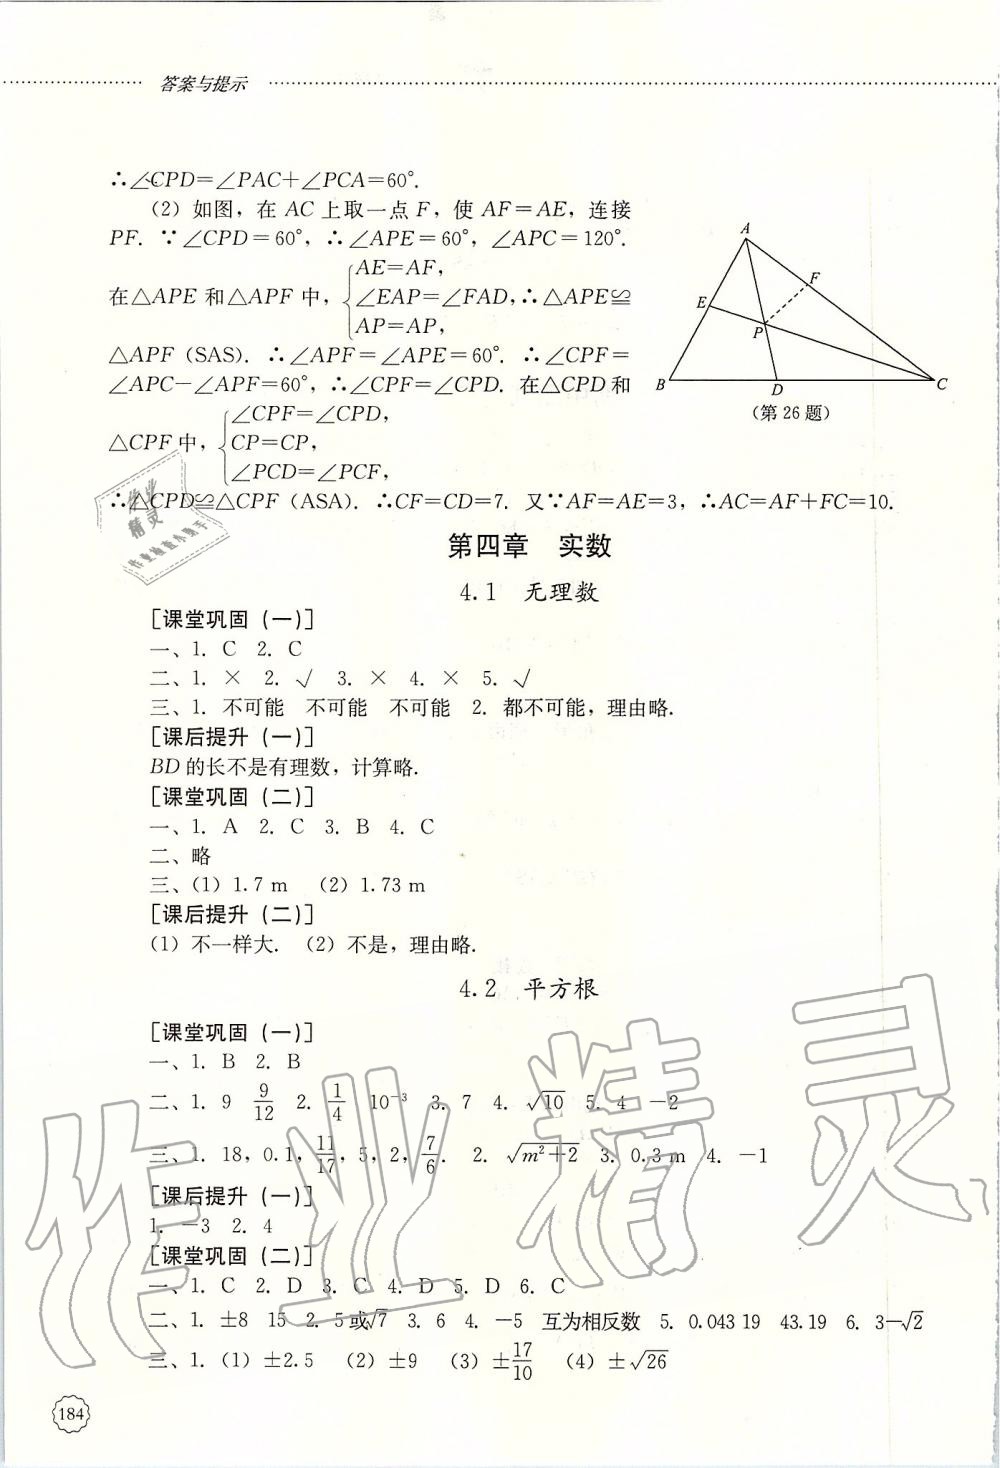 答案与提示
∴∠CPD=∠PAC+∠PCA=60°.
(2) 如图，在 AC 上取一点 F，使 AF=AE，连接
PF. ∵∠CPD=60°，∴∠APE=60°，∠APC=120°.
AE=AF，
在△APE 和△APF 中，∠EAP=∠FAD，∴△APE≌
AP=AP，
△APF (SAS). ∴∠APF=∠APE=60°. ∴∠CPF=
∠APC−∠APF=60°，∴∠CPF=∠CPD. 在△CPD 和
∠CPF=∠CPD，
△CPF 中，CP=CP，
∠PCD=∠PCF，
A
F
E
P
B
D
C
(第 26 题)
∴△CPD≌△CPF (ASA). ∴CF=CD=7. 又∵AF=AE=3，∴AC=AF+FC=10.
第四章 实数
4.1 无理数
[课堂巩固 (一)]
一、1. C 2. C
二、1. × 2. √ 3. × 4. × 5. √
三、1. 不可能 不可能 不可能 2. 都不可能，理由略.
[课后提升 (一)]
BD 的长不是有理数，计算略.
[课堂巩固 (二)]
一、1. A 2. C 3. B 4. C
二、略
三、(1) 1.7 m (2) 1.73 m
[课后提升 (二)]
(1) 不一样大. (2) 不是，理由略.
4.2 平方根
[课堂巩固 (一)]
一、1. B 2. B
二、1. 9 9/12 2. 1/4 10⁻³ 3. 7 4. √10 5. 4 −2
三、1. 18，0.1，11/17，5，2，7/6. 2. √(m²+2) 3. 0.3 m 4. −1
[课后提升 (一)]
1. −3 2. 4
[课堂巩固 (二)]
一、1. C 2. D 3. C 4. D 5. D 6. C
二、1. ±8 15 2. 5或√7 3. 6 4. −5 互为相反数 5. 0.043 19 43.19 6. 3−√2
三、1. (1) ±2.5 (2) ±9 (3) ±17/10 (4) ±√26
184
作业精灵
作业精灵